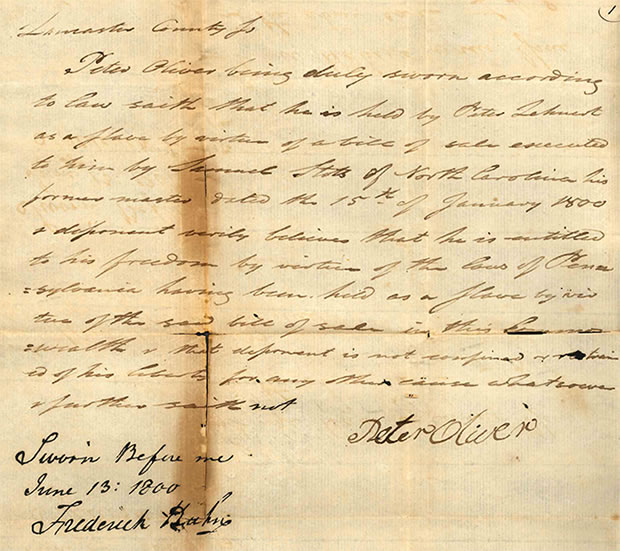 1
Lancaster County Ss
Peter Oliver being duly sworn according
to law saith that he is held by Peter Lehnert
as a slave by virtue of a bill of sale executed
to him by Samuel Stotz of North Carolina his
former master dated the 15th of January 1800
& deponent verily believes that he is entitled
to his freedom by virtue of the laws of Penn
=sylvania having been held as a slave by vir
tue of the said bill of sale in this Common
=wealth & that deponent is not confined & restrain
ed of his liberty for any other cause whatsoever
& further saith not
Peter Oliver
Sworn Before me
June 13: 1800
Frederick